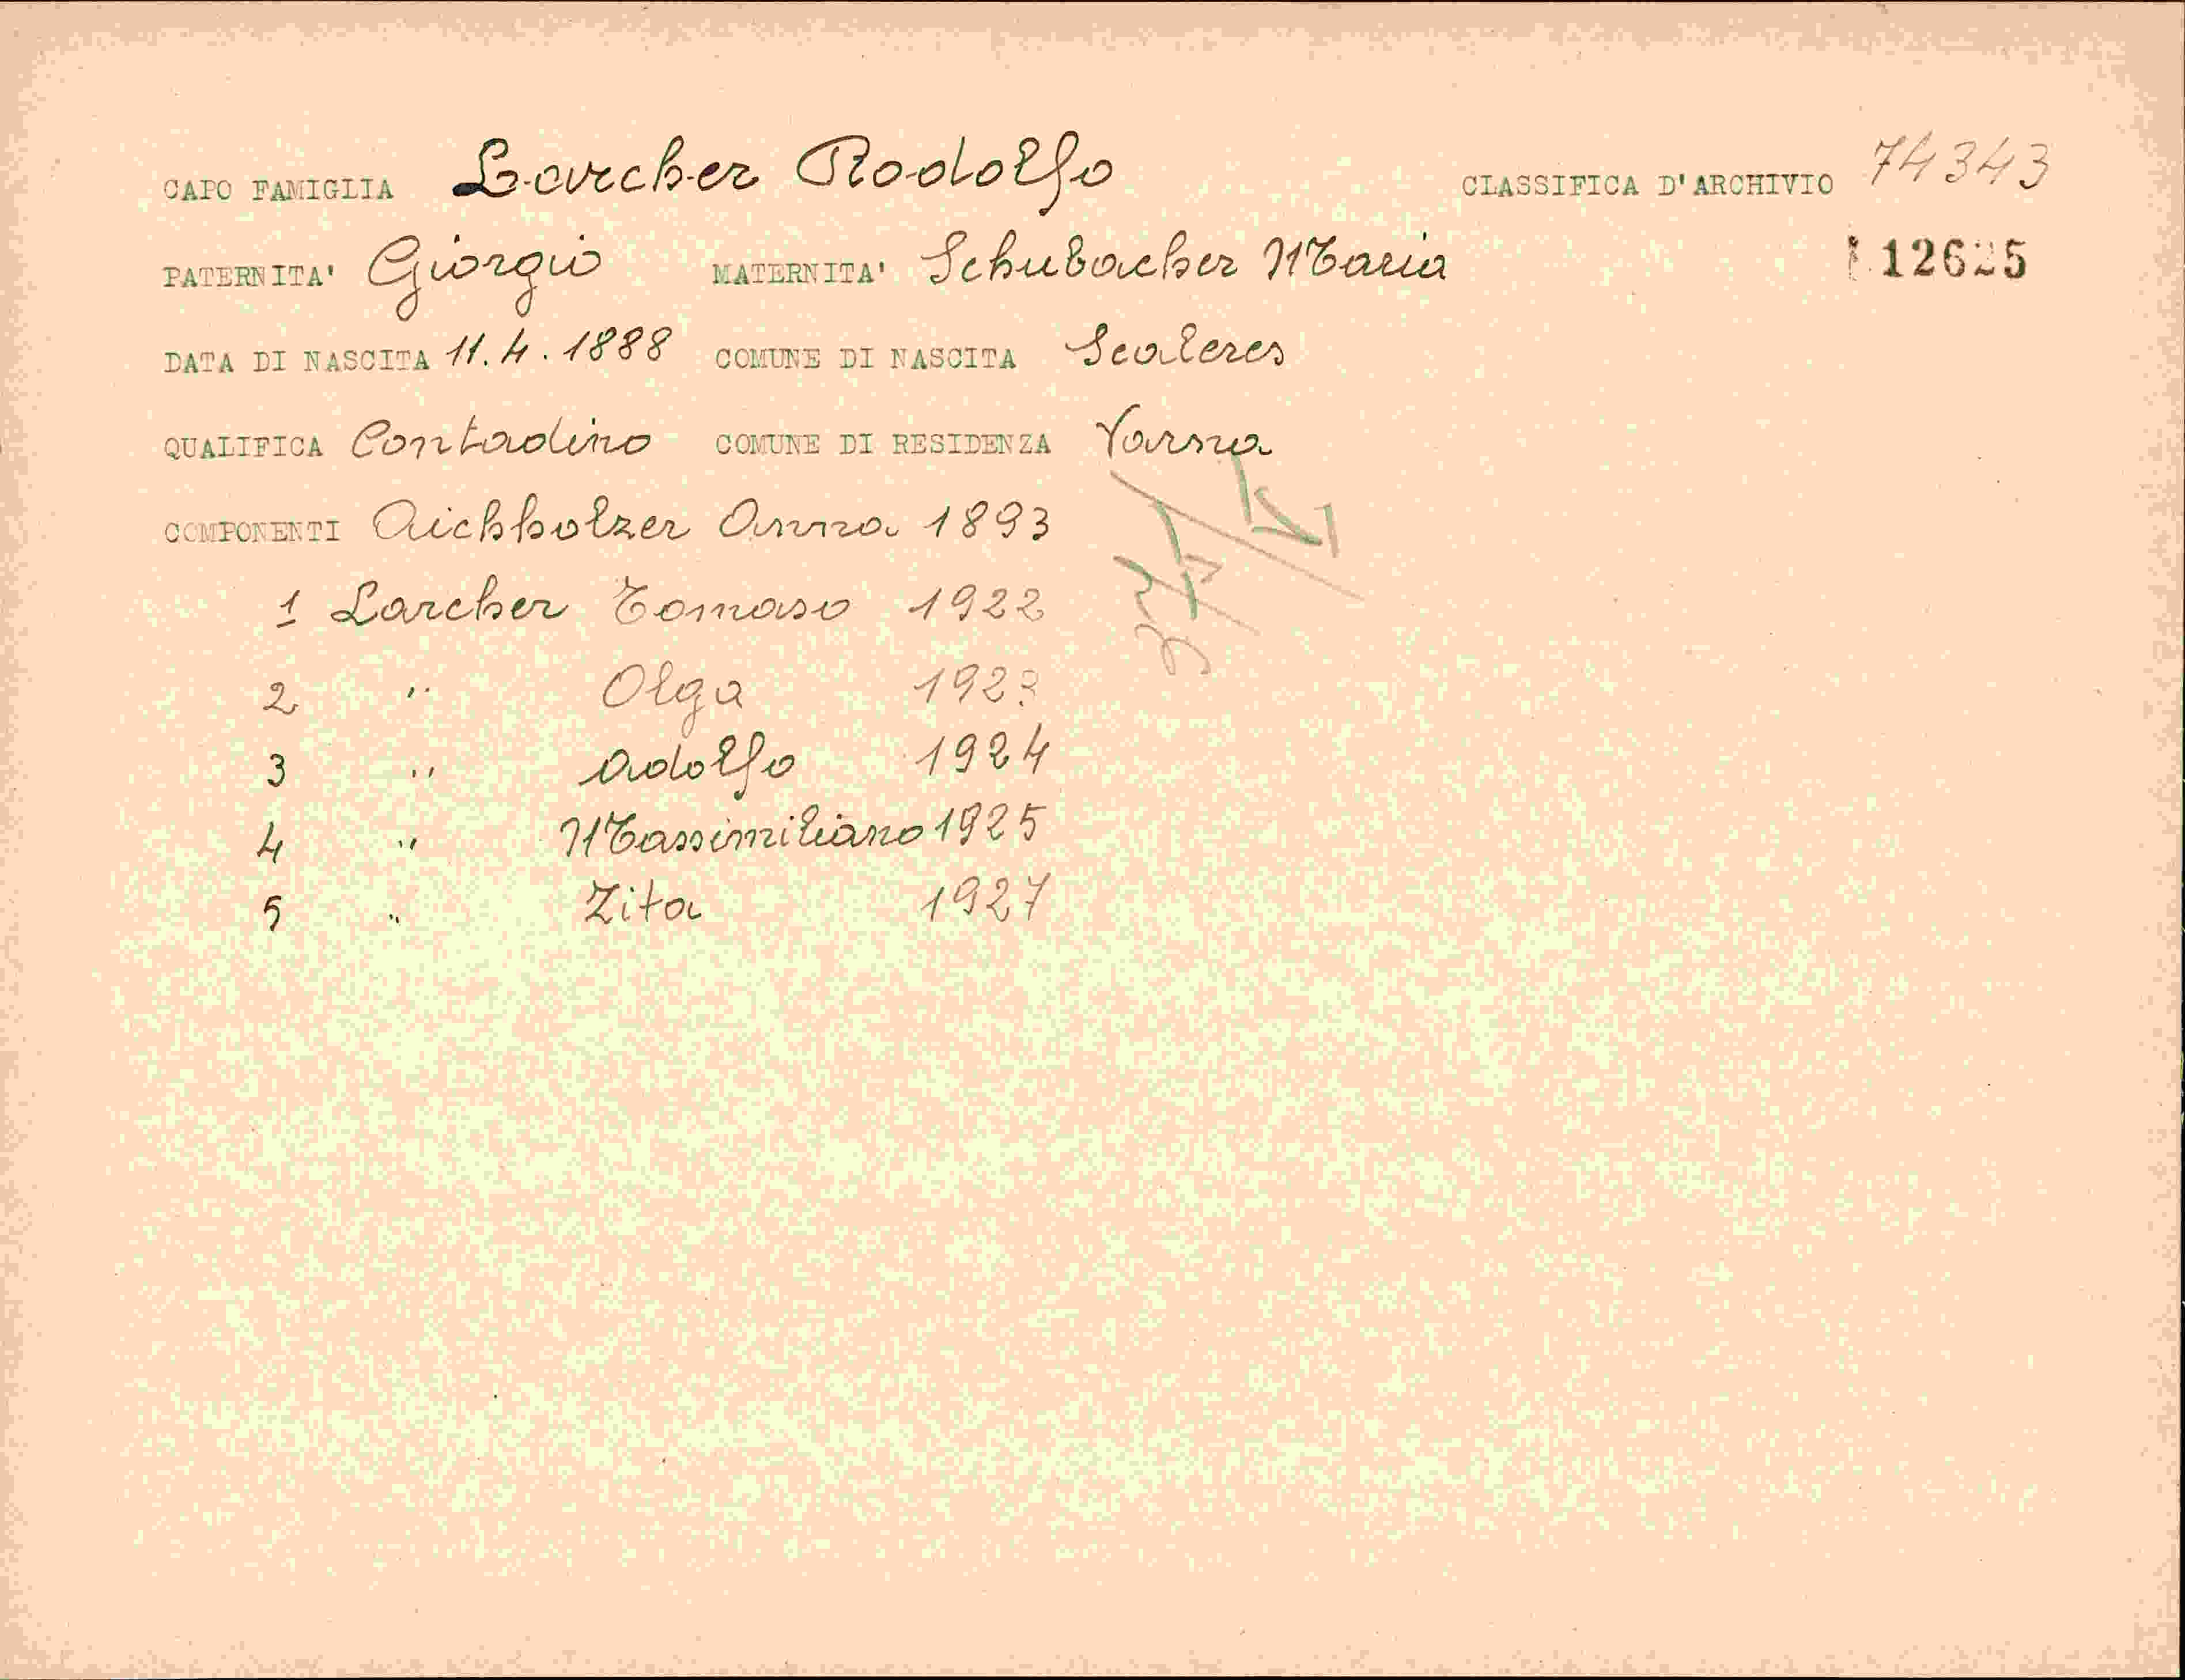 CAPO FAMIGLIA Larcher Rodolfo CLASSIFICA D'ARCHIVIO 74343
PATERNITA' Giorgio MATERNITA' Schubacher Maria 12625
DATA DI NASCITA 11.4.1888 COMUNE DI NASCITA Scaleres
QUALIFICA Contadino COMUNE DI RESIDENZA Varna
COMPONENTI Aichholzer Anna 1893
1 Larcher Tomaso 1922
2 " Olga 1923
3 " Adolfo 1924
4 " Massimiliano 1925
5 " Zita 1927